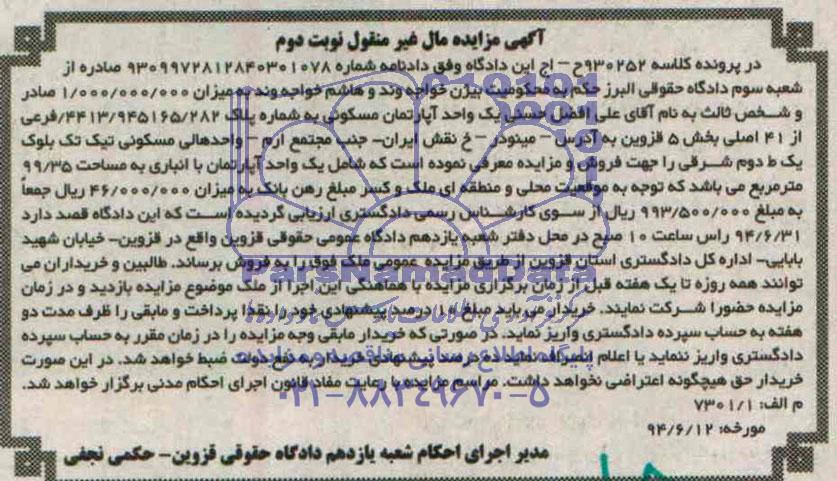 آگهی مزایده مال غیر منقول نوبت دوم
در پرونده کلاسه ۹۳۰۲۵۲ح – اج این دادگاه وفق دادنامه شماره ۹۳۰۹۹۷۲۸۱۲۸۴۰۳۰۱۰۷۸ صادره از
شعبه سوم دادگاه حقوقی البرز حکم به محکومیت بیژن خواجه وند و هاشم خواجه وند به میزان ۱/۰۰۰/۰۰۰/۰۰۰ صادر
و شخص ثالث به نام آقای علی افضل حسنی یک واحد آپارتمان مسکونی به شماره پلاک ۴۴۱۳/۹۴۵۱۶۵/۲۸۲فرعی
از ۴۱ اصلی بخش ۵ قزوین به آدرس – مینودر – خ نقش ایران- جنب مجتمع ارم – واحدهالی مسکونی تیک تک بلوک
یک ط دوم شرقی را جهت فروش و مزایده معرفی نموده است که شامل یک واحد آپارتمان با انباری به مساحت ۹۹/۳۵
مترمربع می باشد که توجه به موقعیت محلی و منطقه ای ملک و کسر مبلغ رهن بانک به میزان ۴۶/۰۰۰/۰۰۰ ریال جمعاً
به مبلغ ۹۹۳/۵۰۰/۰۰۰ ریال از سوی کارشناس رسمی دادگستری ارزیابی گردیده است که این دادگاه قصد دارد
۹۴/۶/۳۱ راس ساعت ۱۰ صبح در محل دفتر شعبه یازدهم دادگاه عمومی حقوقی قزوین واقع در قزوین- خیابان شهید
بابایی- اداره کل دادگستری استان قزوین از طریق مزایده عمومی ملک فوق را به فروش برساند. طالبین و خریداران می
توانند همه روزه تا یک هفته قبل از زمان برگزاری مزایده با هماهنگی این اجرا از ملک موضوع مزایده بازدید و در زمان
مزایده حضورا شرکت نمایند. خریدار می باید مبلغ ۱۰ درصد پیشنهادی خود را نقدا پرداخت و مابقی را ظرف مدت دو
هفته به حساب سپرده دادگستری واریز نماید. در صورتی که خریدار مابقی وجه مزایده را در زمان مقرر به حساب سپرده
دادگستری واریز ننماید یا اعلام انصراف نماید ده درصد پیشنهادی خریدار به نفع دولت ضبط خواهد شد. در این صورت
خریدار حق هیچگونه اعتراضی نخواهد داشت. مراسم مزایده با رعایت مفاد قانون اجرای احکام مدنی برگزار خواهد شد.
م الف: ۷۳۰۱/۱
مورخه: ۹۴/۶/۱۲
مدیر اجرای احکام شعبه یازدهم دادگاه حقوقی قزوین- حکمی نجفی
ParsNamadData
پایگاه اطلاع رسانی مناقصه و مزایده
۰۲۱-۸۸۳۴۹۶۷۰-۵